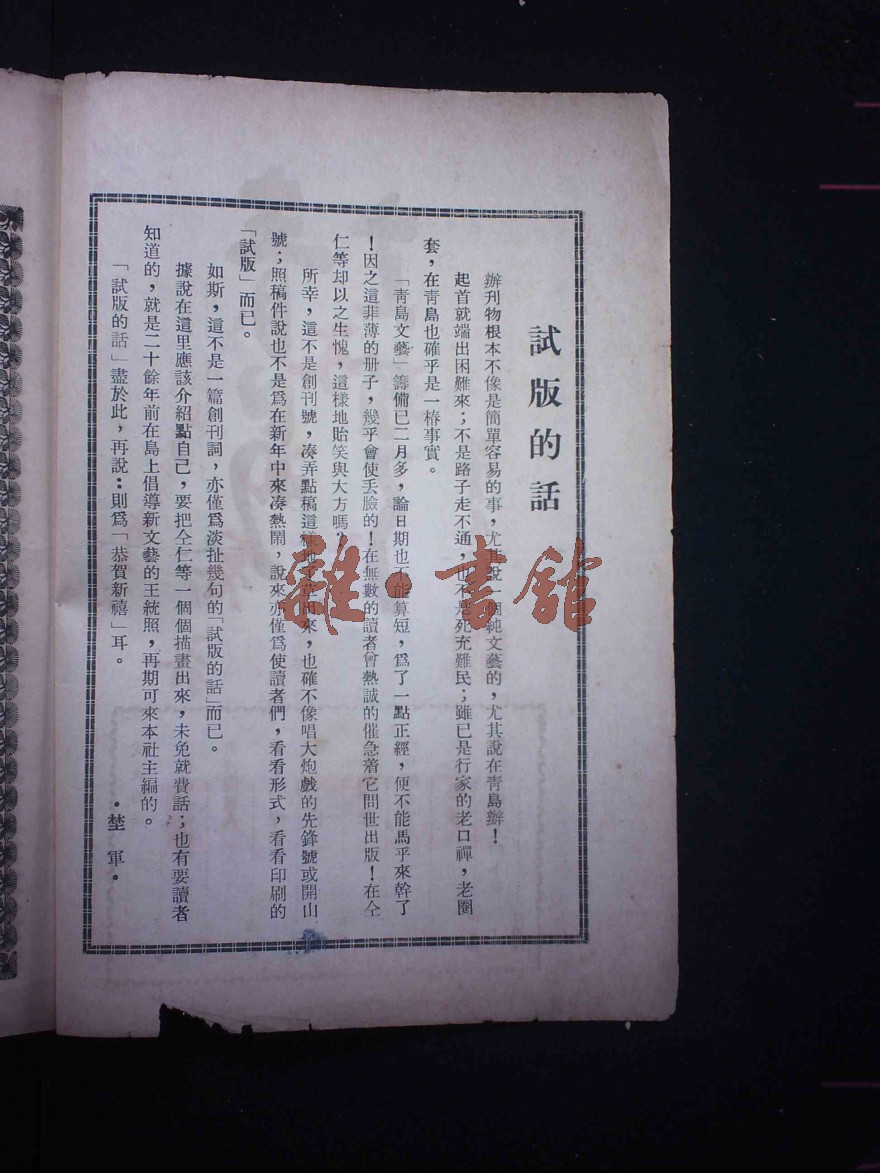 試版的話
辦刊物根本不像是簡單容易的事，尤其說一個純文藝的，尤其說在青島辦！
起首就端出困難來；不是路子走不通，也不是死充難民；雖已是行家的老口禪，老圈
套，在青島也確乎是一樁事實。
「青島文藝」籌備已二月多，論日期也不能算短，爲了一點正經，便不能馬乎來幹了
！因之這菲薄的册子，幾乎會使丢臉的！在無數的讀者曾熱誠的催急着它問世出版！在仝
仁等却以之生愧，這樣地貽笑與大方嗎？
所幸，這不是創刊號，凑弄點稿這樣地 出來，也確不像唱大炮戲的先鋒號或開山
號；照稿件說也不是爲在新年中來凑熱鬧，說來亦僅爲使讀者們，看看形式，看看印刷的
「試版」而已。
如斯，這不是一篇創刊詞，亦僅爲淡扯幾句的「試版的話」而已。
據說在這里應該介紹點自己，要把仝仁等一個個描畫出來，未免就費話；也有要讀者
知道的，就是二十餘年前在島上倡導新文藝的王統照，再期可來本社主編的。
「試版的話」盡於此，再說：則爲「恭賀新禧」耳。
·埜軍·
雜·書館